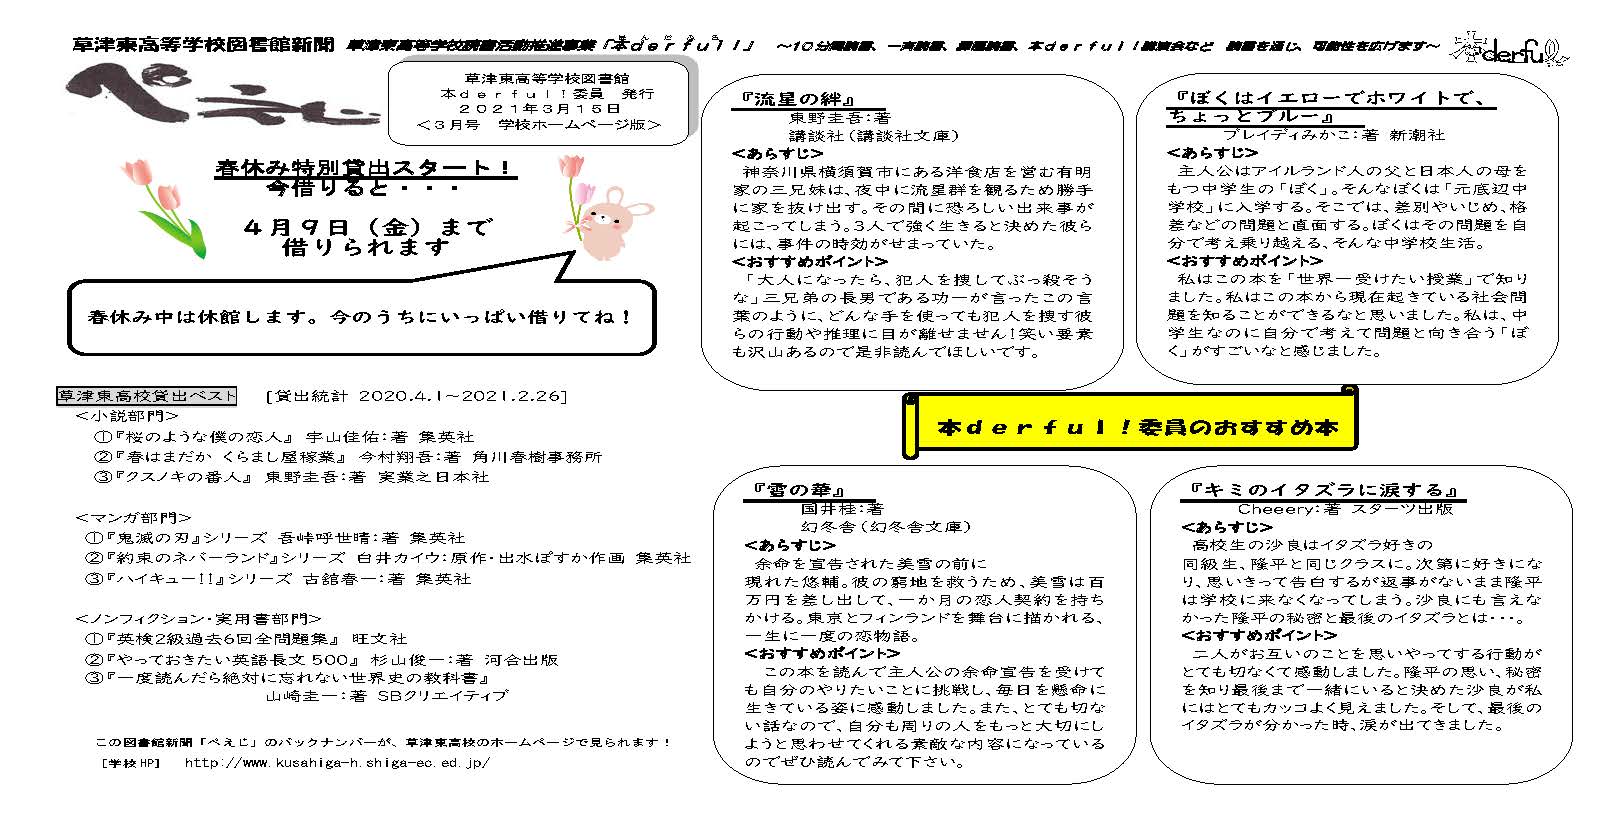 草津東高等学校図書館新聞 草津東高等学校読書活動推進事業『本ｄｅｒｆｕｌｌ』 ～10分間読書、一斉読書、課題読書、本ｄｅｒｆｕｌ！講演会など 読書を通じ、可能性を広げます～
本derful
ぺえじ
草津東高等学校図書館
本ｄｅｒｆｕｌ！委員 発行
２０２１年３月１５日
＜３月号 学校ホームページ版＞
春休み特別貸出スタート！
今借りると・・・
４月９日（金）まで
借りられます
春休み中は休館します。今のうちにいっぱい借りてね！
草津東高校貸出ベスト [貸出統計 2020.4.1～2021.2.26]
＜小説部門＞
①『桜のような僕の恋人』 宇山佳佑：著 集英社
②『春はまだか くらまし屋稼業』 今村翔吾：著 角川春樹事務所
③『クスノキの番人』 東野圭吾：著 実業之日本社
＜マンガ部門＞
①『鬼滅の刃』シリーズ 吾峠呼世晴：著 集英社
②『約束のネバーランド』シリーズ 白井カイウ：原作・出水ぽすか作画 集英社
③『ハイキュー!!』シリーズ 古舘春一：著 集英社
＜ノンフィクション・実用書部門＞
①『英検2級過去6回全問題集』 旺文社
②『やっておきたい英語長文500』 杉山俊一：著 河合出版
③『一度読んだら絶対に忘れない世界史の教科書』
山﨑圭一：著 SBクリエイティブ
この図書館新聞「ぺえじ」のバックナンバーが、草津東高校のホームページで見られます！
[学校HP] http://www.kusahiga-h.shiga-ec.ed.jp/
『流星の絆』
東野圭吾：著
講談社（講談社文庫）
<あらすじ>
神奈川県横須賀市にある洋食店を営む有明
家の三兄妹は、夜中に流星群を観るため勝手
に家を抜け出す。その間に恐ろしい出来事が
起こってしまう。3人で強く生きると決めた彼ら
には、事件の時効がせまっていた。
<おすすめポイント>
「大人になったら、犯人を捜してぶっ殺そう
な」三兄弟の長男である功一が言ったこの言
葉のように、どんな手を使っても犯人を捜す彼
らの行動や推理に目が離せません！笑い要素
も沢山あるので是非読んでほしいです。
『ぼくはイエローでホワイトで、
ちょっとブルー』
ブレイディみかこ：著 新潮社
<あらすじ>
主人公はアイルランド人の父と日本人の母を
もつ中学生の「ぼく」。そんなぼくは「元底辺中
学校」に入学する。そこでは、差別やいじめ、格
差などの問題と直面する。ぼくはその問題を自
分で考え乗り越える、そんな中学校生活。
<おすすめポイント>
私はこの本を「世界一受けたい授業」で知り
ました。私はこの本から現在起きている社会問
題を知ることができるなと思いました。私は、中
学生なのに自分で考えて問題と向き合う「ぼ
く」がすごいなと感じました。
本ｄｅｒｆｕｌ！委員のおすすめ本
『雪の華』
国井桂：著
幻冬舎（幻冬舎文庫）
<あらすじ>
余命を宣告された美雪の前に
現れた悠輔。彼の窮地を救うため、美雪は百
万円を差し出して、一か月の恋人契約を持ち
かける。東京とフィンランドを舞台に描かれる、
一生に一度の恋物語。
<おすすめポイント>
この本を読んで主人公の余命宣告を受けて
も自分のやりたいことに挑戦し、毎日を懸命に
生きている姿に感動しました。また、とても切な
い話なので、自分も周りの人をもっと大切にし
ようと思わせてくれる素敵な内容になっている
のでぜひ読んでみて下さい。
『キミのイタズラに涙する』
Cheeery：著 スターツ出版
<あらすじ>
高校生の沙良はイタズラ好きの
同級生、隆平と同じクラスに。次第に好きにな
り、思いきって告白するが返事がないまま隆平
は学校に来なくなってしまう。沙良にも言えな
かった隆平の秘密と最後のイタズラとは・・・。
<おすすめポイント>
二人がお互いのことを思いやってする行動が
とても切なくて感動しました。隆平の思い、秘密
を知り最後まで一緒にいると決めた沙良が私
にはとてもカッコよく見えました。そして、最後の
イタズラが分かった時、涙が出てきました。